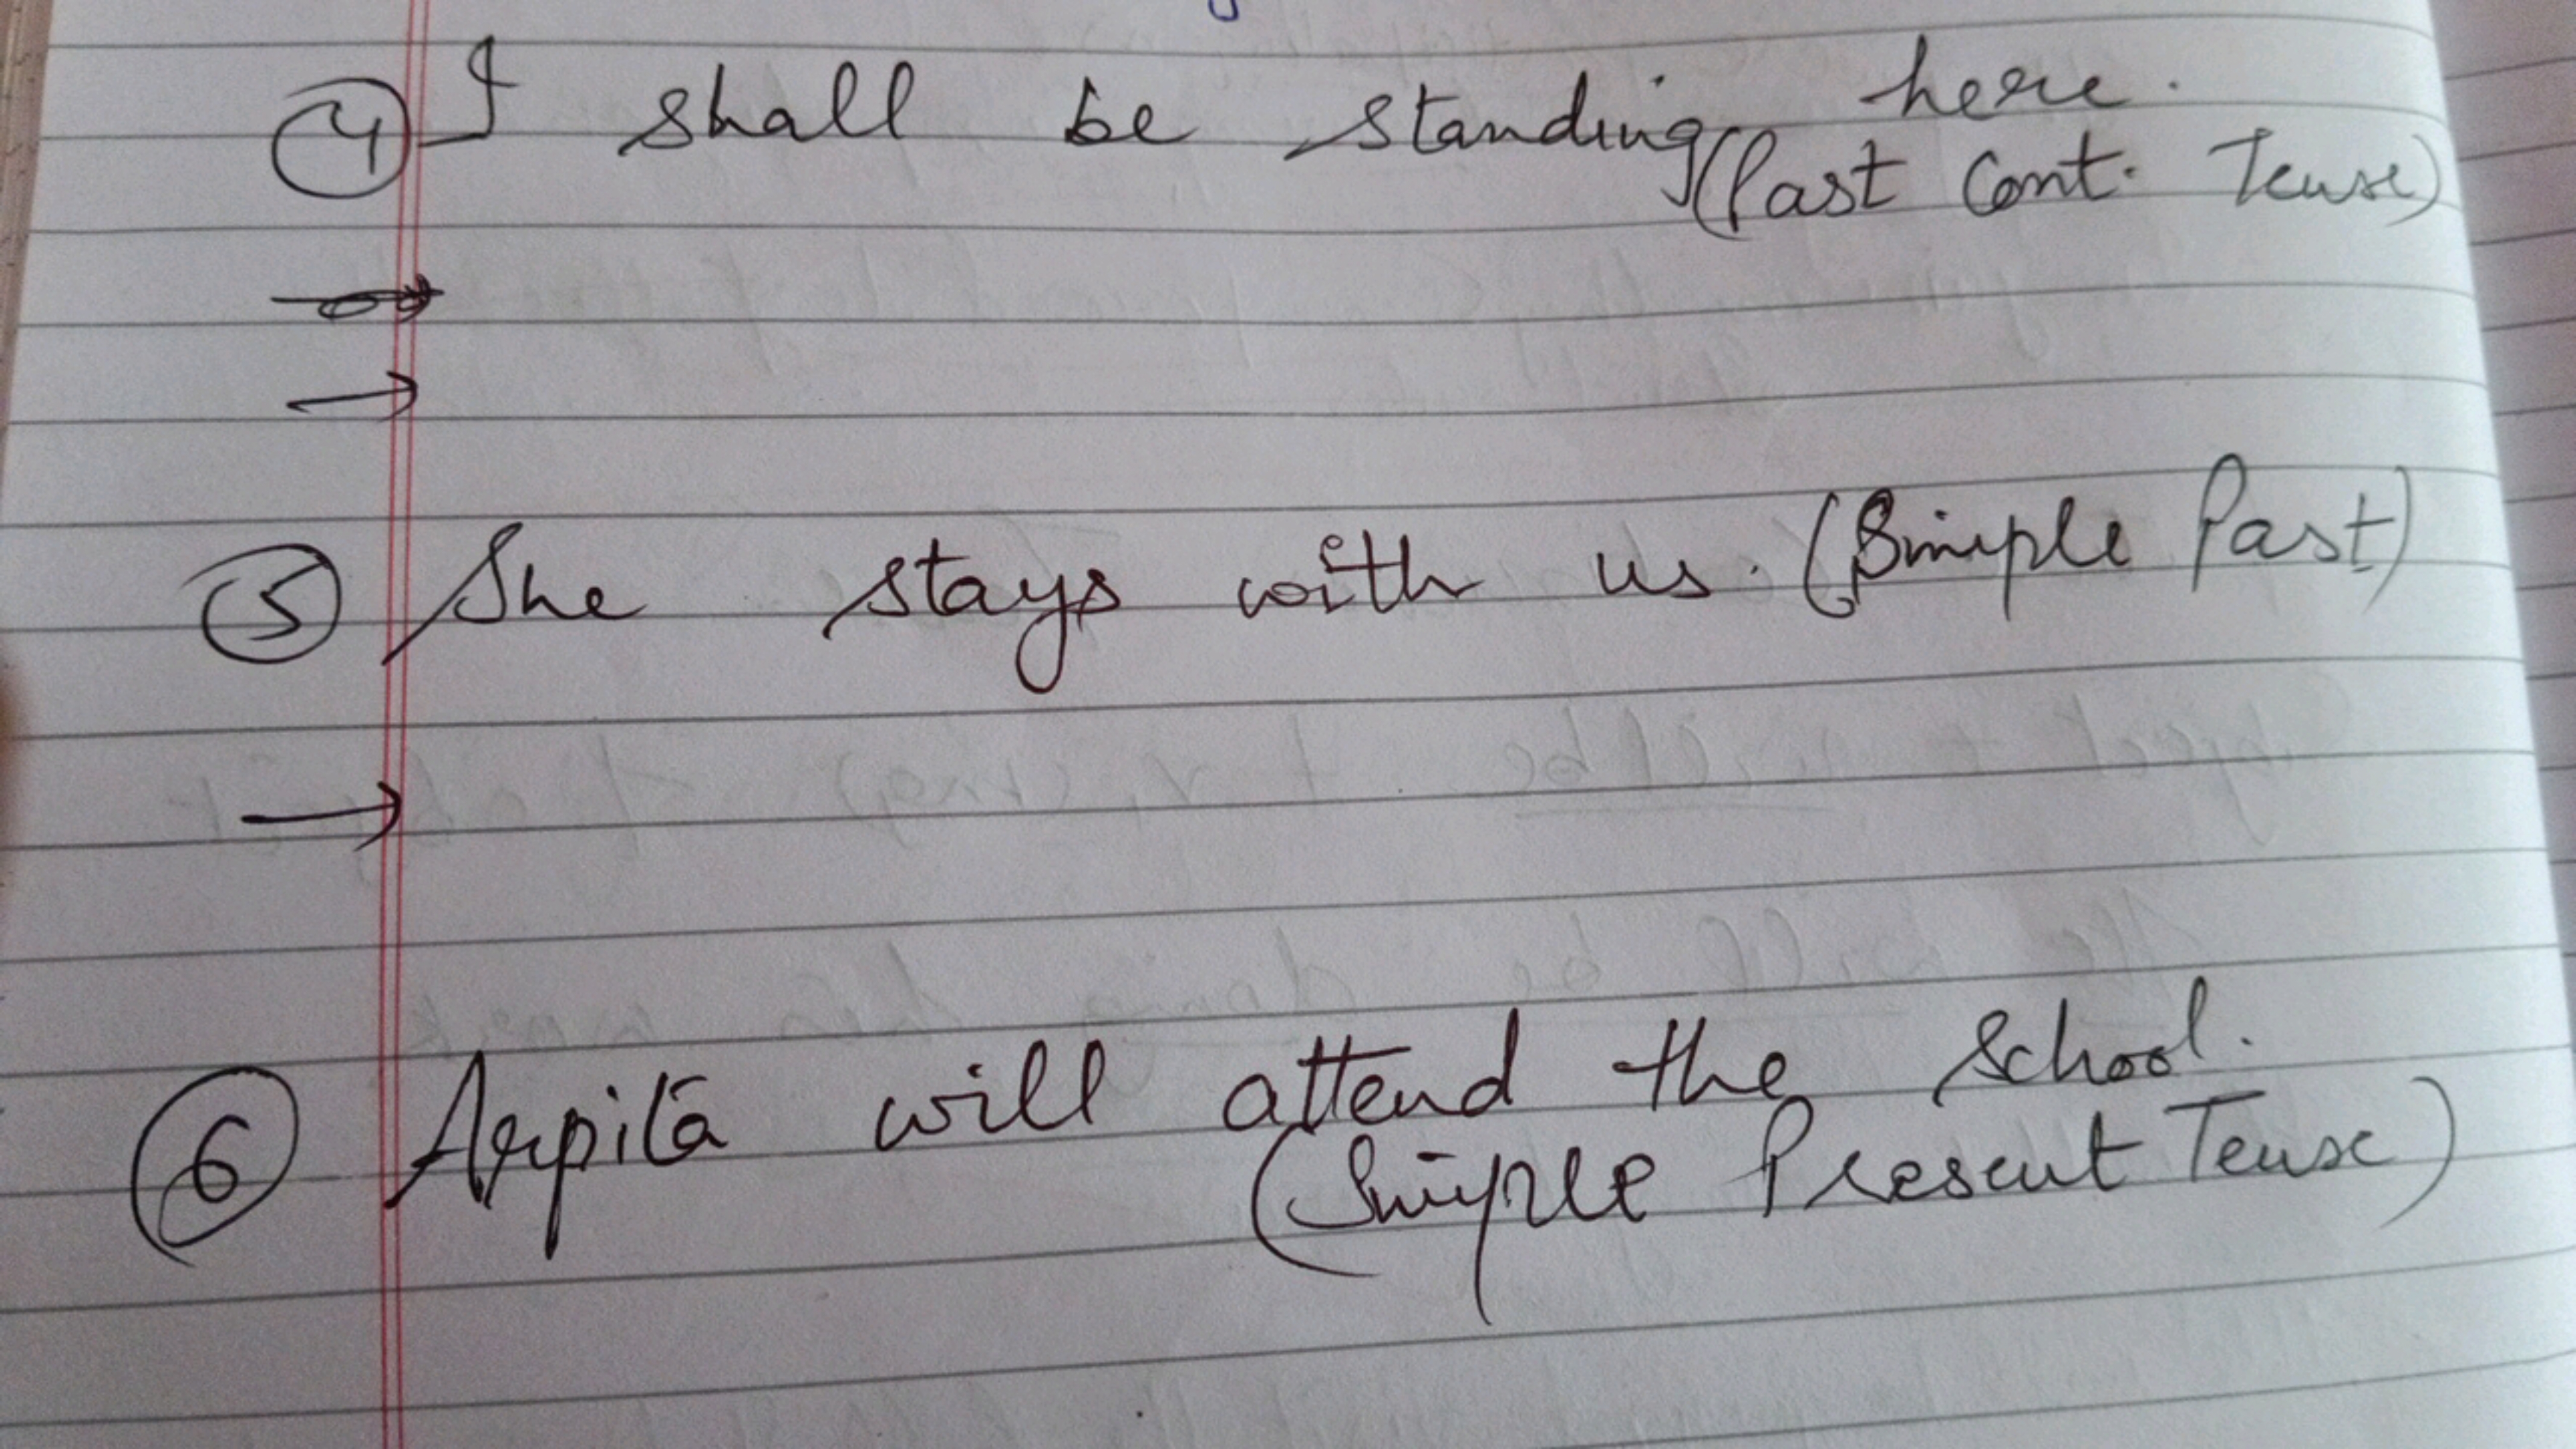 ④ I shall be standing here.
(Past Cont. Tense)
→
→
⑤ She stays with us. (Simple Past)
→
⑥ Arpita will attend the School.
(Simple Present Tense)